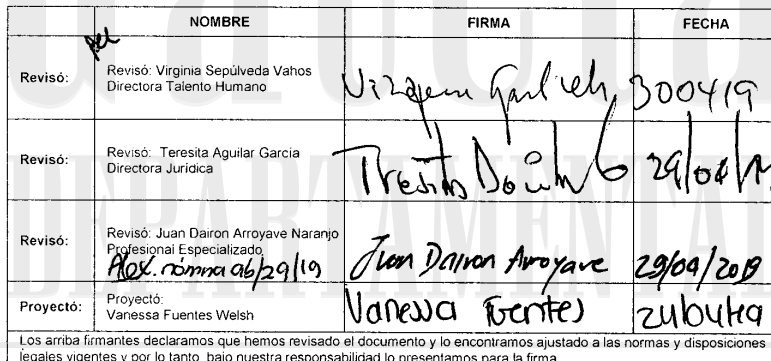 NOMBRE FIRMA FECHA
Revisó: Revisó: Virginia Sepúlveda Vahos
Directora Talento Humano 300419
Revisó: Revisó: Teresita Aguilar García
Directora Jurídica 29/04/
Revisó: Revisó: Juan Dairon Arroyave Naranjo
Profesional Especializado Juan Dairon Arroyave 29/04/2019
Alex. nómina ab/29/19
Proyectó: Proyectó:
Vanessa Fuentes Welsh Vanessa Fuentes
Los arriba firmantes declaramos que hemos revisado el documento y lo encontramos ajustado a las normas y disposiciones
legales vigentes y por lo tanto, bajo nuestra responsabilidad lo presentamos para la firma.
DEPARTAMENTAL